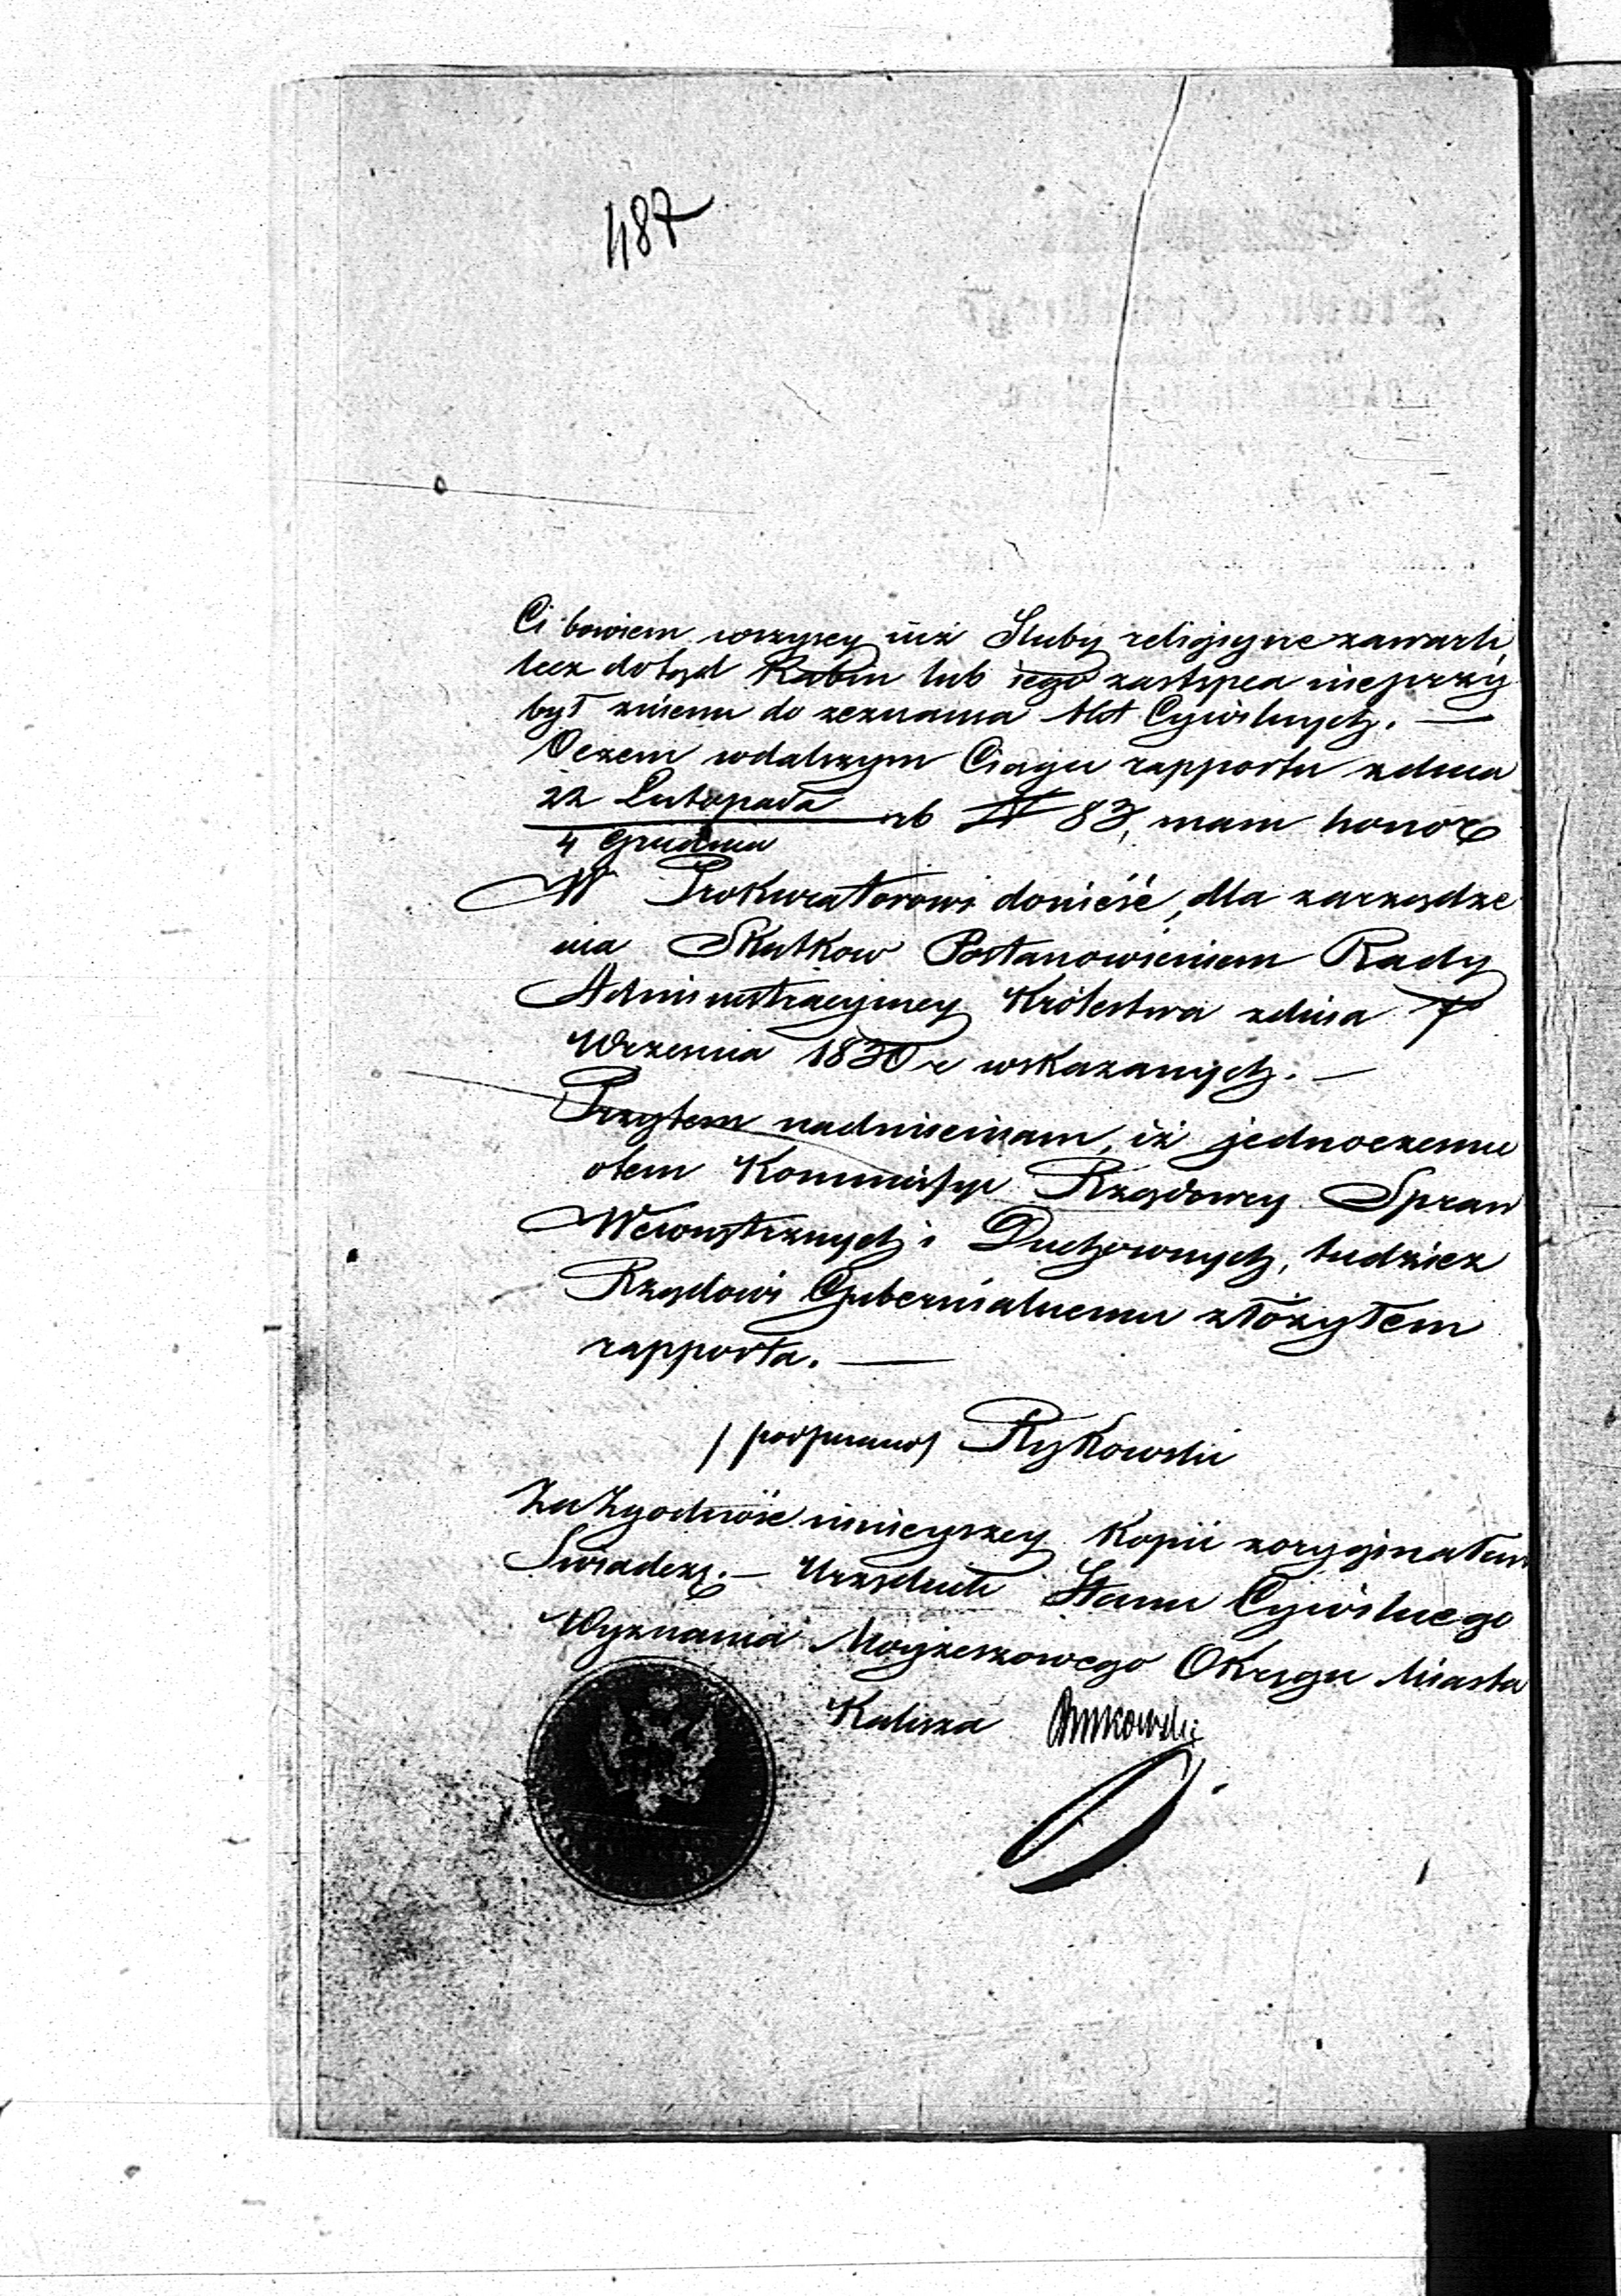 487
Ci bowiem wszyscy iuż Sluby religijne zawarli,
lecz dotąd Rabin lub iego zastępca nieprzy
był zniemi do zeznania Akt Cywilnych. —
Oczem wdalszym Ciągu rapportu zdnia
22 Listopada
4 Grudnia
nb N 83, mam honor
W Prokuratorowi donieść, dla zarządze
nia Skutkow Postanowieniem Rady
Administracyjney Królestwa zdnia 7
Września 1830 r wskazanych. —
Przytem nadmieniam, iż jednocześnie
otem Kommissyi Rządowey Spraw
Wewnętrznych i Duchownych, tudzież
Rządowi Gubernialnemu złożyłem
rapporta. —
/ podpisano / Rykowski
Za Zgodność ninieyszey Kopii zoryginałem
Swiadczę. — Urzędnik Stanu Cywilnego
Wyznania Moyżeszowego Okręgu Miasta
Kalisza